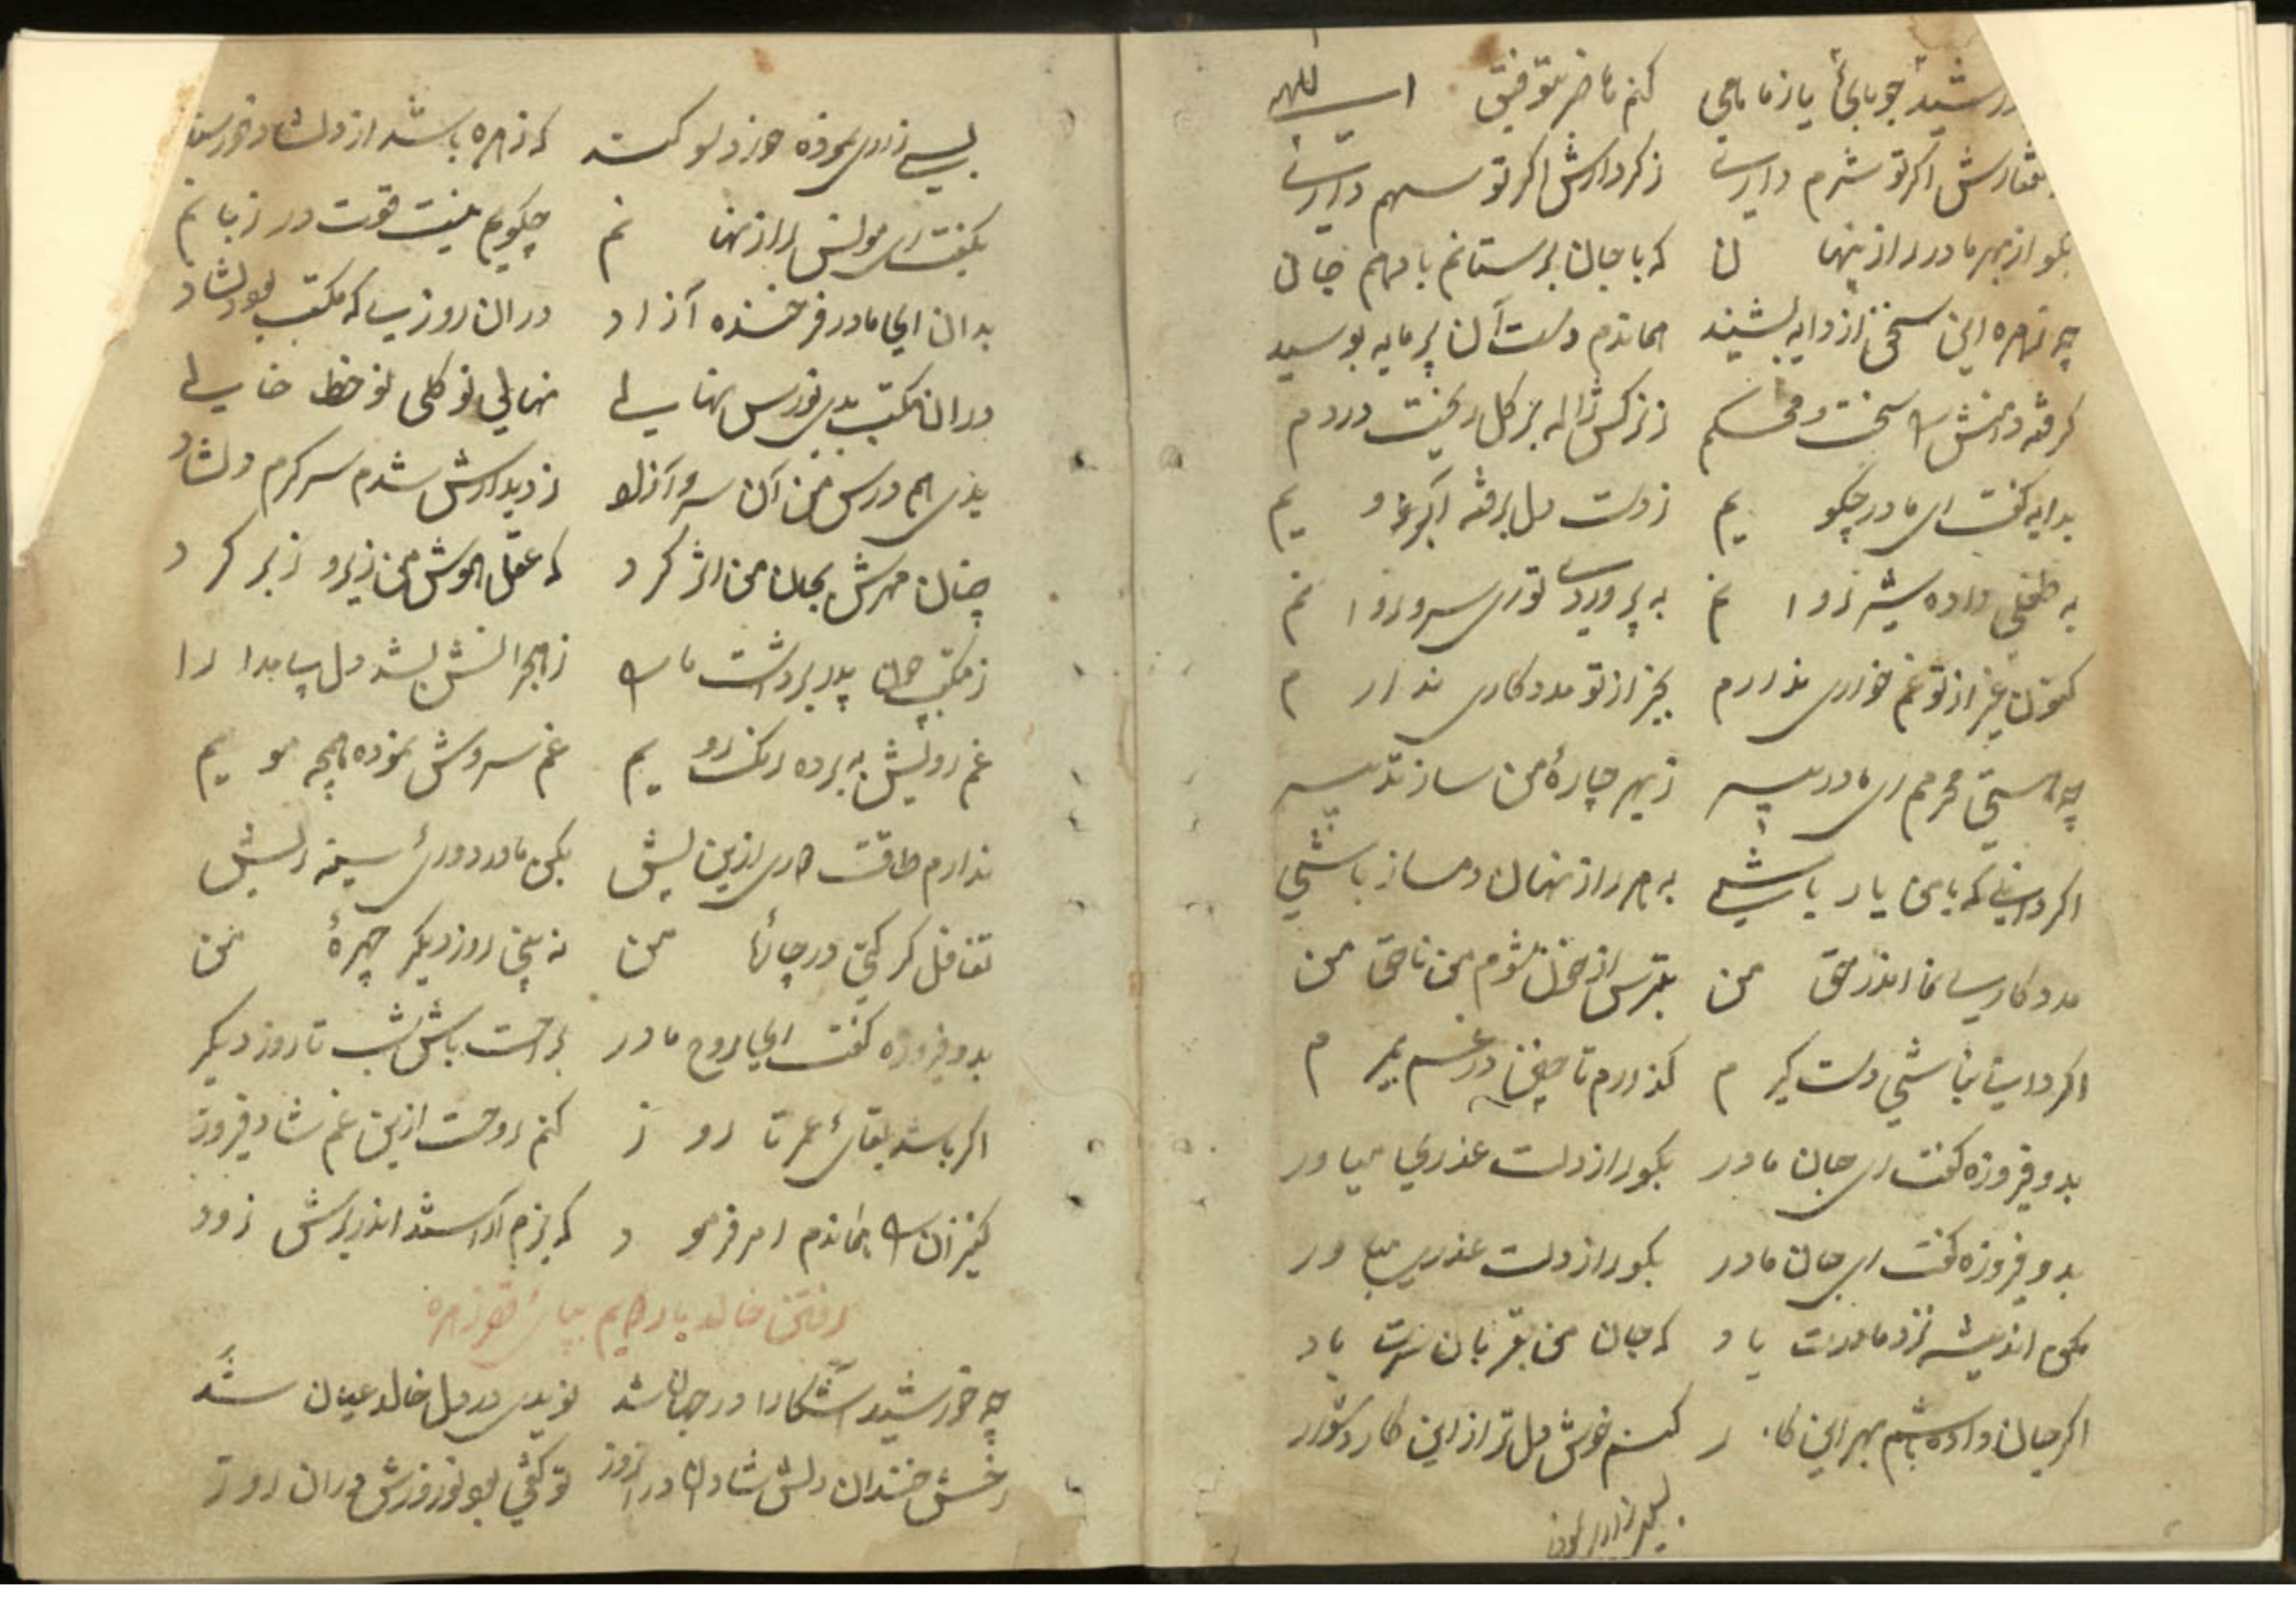 کنم حاضر بتوفیق الهی
زکردارش اکر تو سهم داری
بکو از بهر مادر راز پنهان که با جان برستانم با مهم جان
چه زهره این سخن از دایه بشنید هماندم دست آن پرمایه بوسید
کرفته دامنش را سخت و محکم ز نرکس ژاله بر کل ریخت دردم
بدایه کفت ای مادر چکویم ز دست دل برفته آبرویم
به طفلی داده شیر توانم به پروردی تو ای سرو روانم
کنون غیر از تو غم خواری ندارم بجز از تو مددکاری ندارم
چه هستی محرمم ای مادر پیر زبهر چاره من ساز تدبیر
اکر دانی که با من یار باشی به هر راز نهان دمساز باشی
مددکاری نما اندر حق من بترس از خون شوم من ناحق من
اکر دانی نباشی دست کیرم کذارم تا چنین در غم بمیرم
بدو فیروزه کفت ای جان مادر بکو راز دلت عذری میاور
بدو فیروزه کفت ای جان مادر بکو راز دلت عذری میاور
مکن اندیشه نزد مادرت یاد که جان من بقربان سرت باد
اکر جان داده باشم بهر این کار کنم خوش دل ترا از این کار دشوار
بسی زاری نمو
بسی زاری نموده
که زهره باشد از دلشاد خورسند
بکفت ای مونس راز نهانم چکویم نیست قوت در زبانم
بدان ای مادر فرخنده آزاد در ان روزی که مکتب بود دلشاد
در ان مکتب بدی نورس نهالی نهالی نو کلی نو خط خالی
بدی هم درس من آن سرو آزاد ز دیدارش شدم سرکرم دلشاد
چنان مهرش بجان من اثر کرد که عقل هوش من زیر و زبر کرد
ز مکتب چون پدر برداشت ما را ز هجرانش بشد دل بی مدارا
غم رویش به برده رنک رویم غم سروش نموده همچه مویم
ندارم طاقت دوری ازین بیش بکن مادر دوای سینه ریش
تغافل کر کنی در چاره من نه بینی روز دیکر چهره من
بدو فیروزه کفت ای روح مادر براحت باش شب تا روز دیکر
اکر باشد بقای عمر تا روز کنم روحت ازین غم شاد فیروز
کنیزان را هماندم امر فرمود که بزم آراستند اندر برش زود
رفتن خالد با رحیم بپای قصر زهره
چه خورشید آشکارا در جهان شد نویدی در دل خالد عیان شد
رخش خندان دلش شادان در انروز تو کفتی بو نوروزش در ان روز